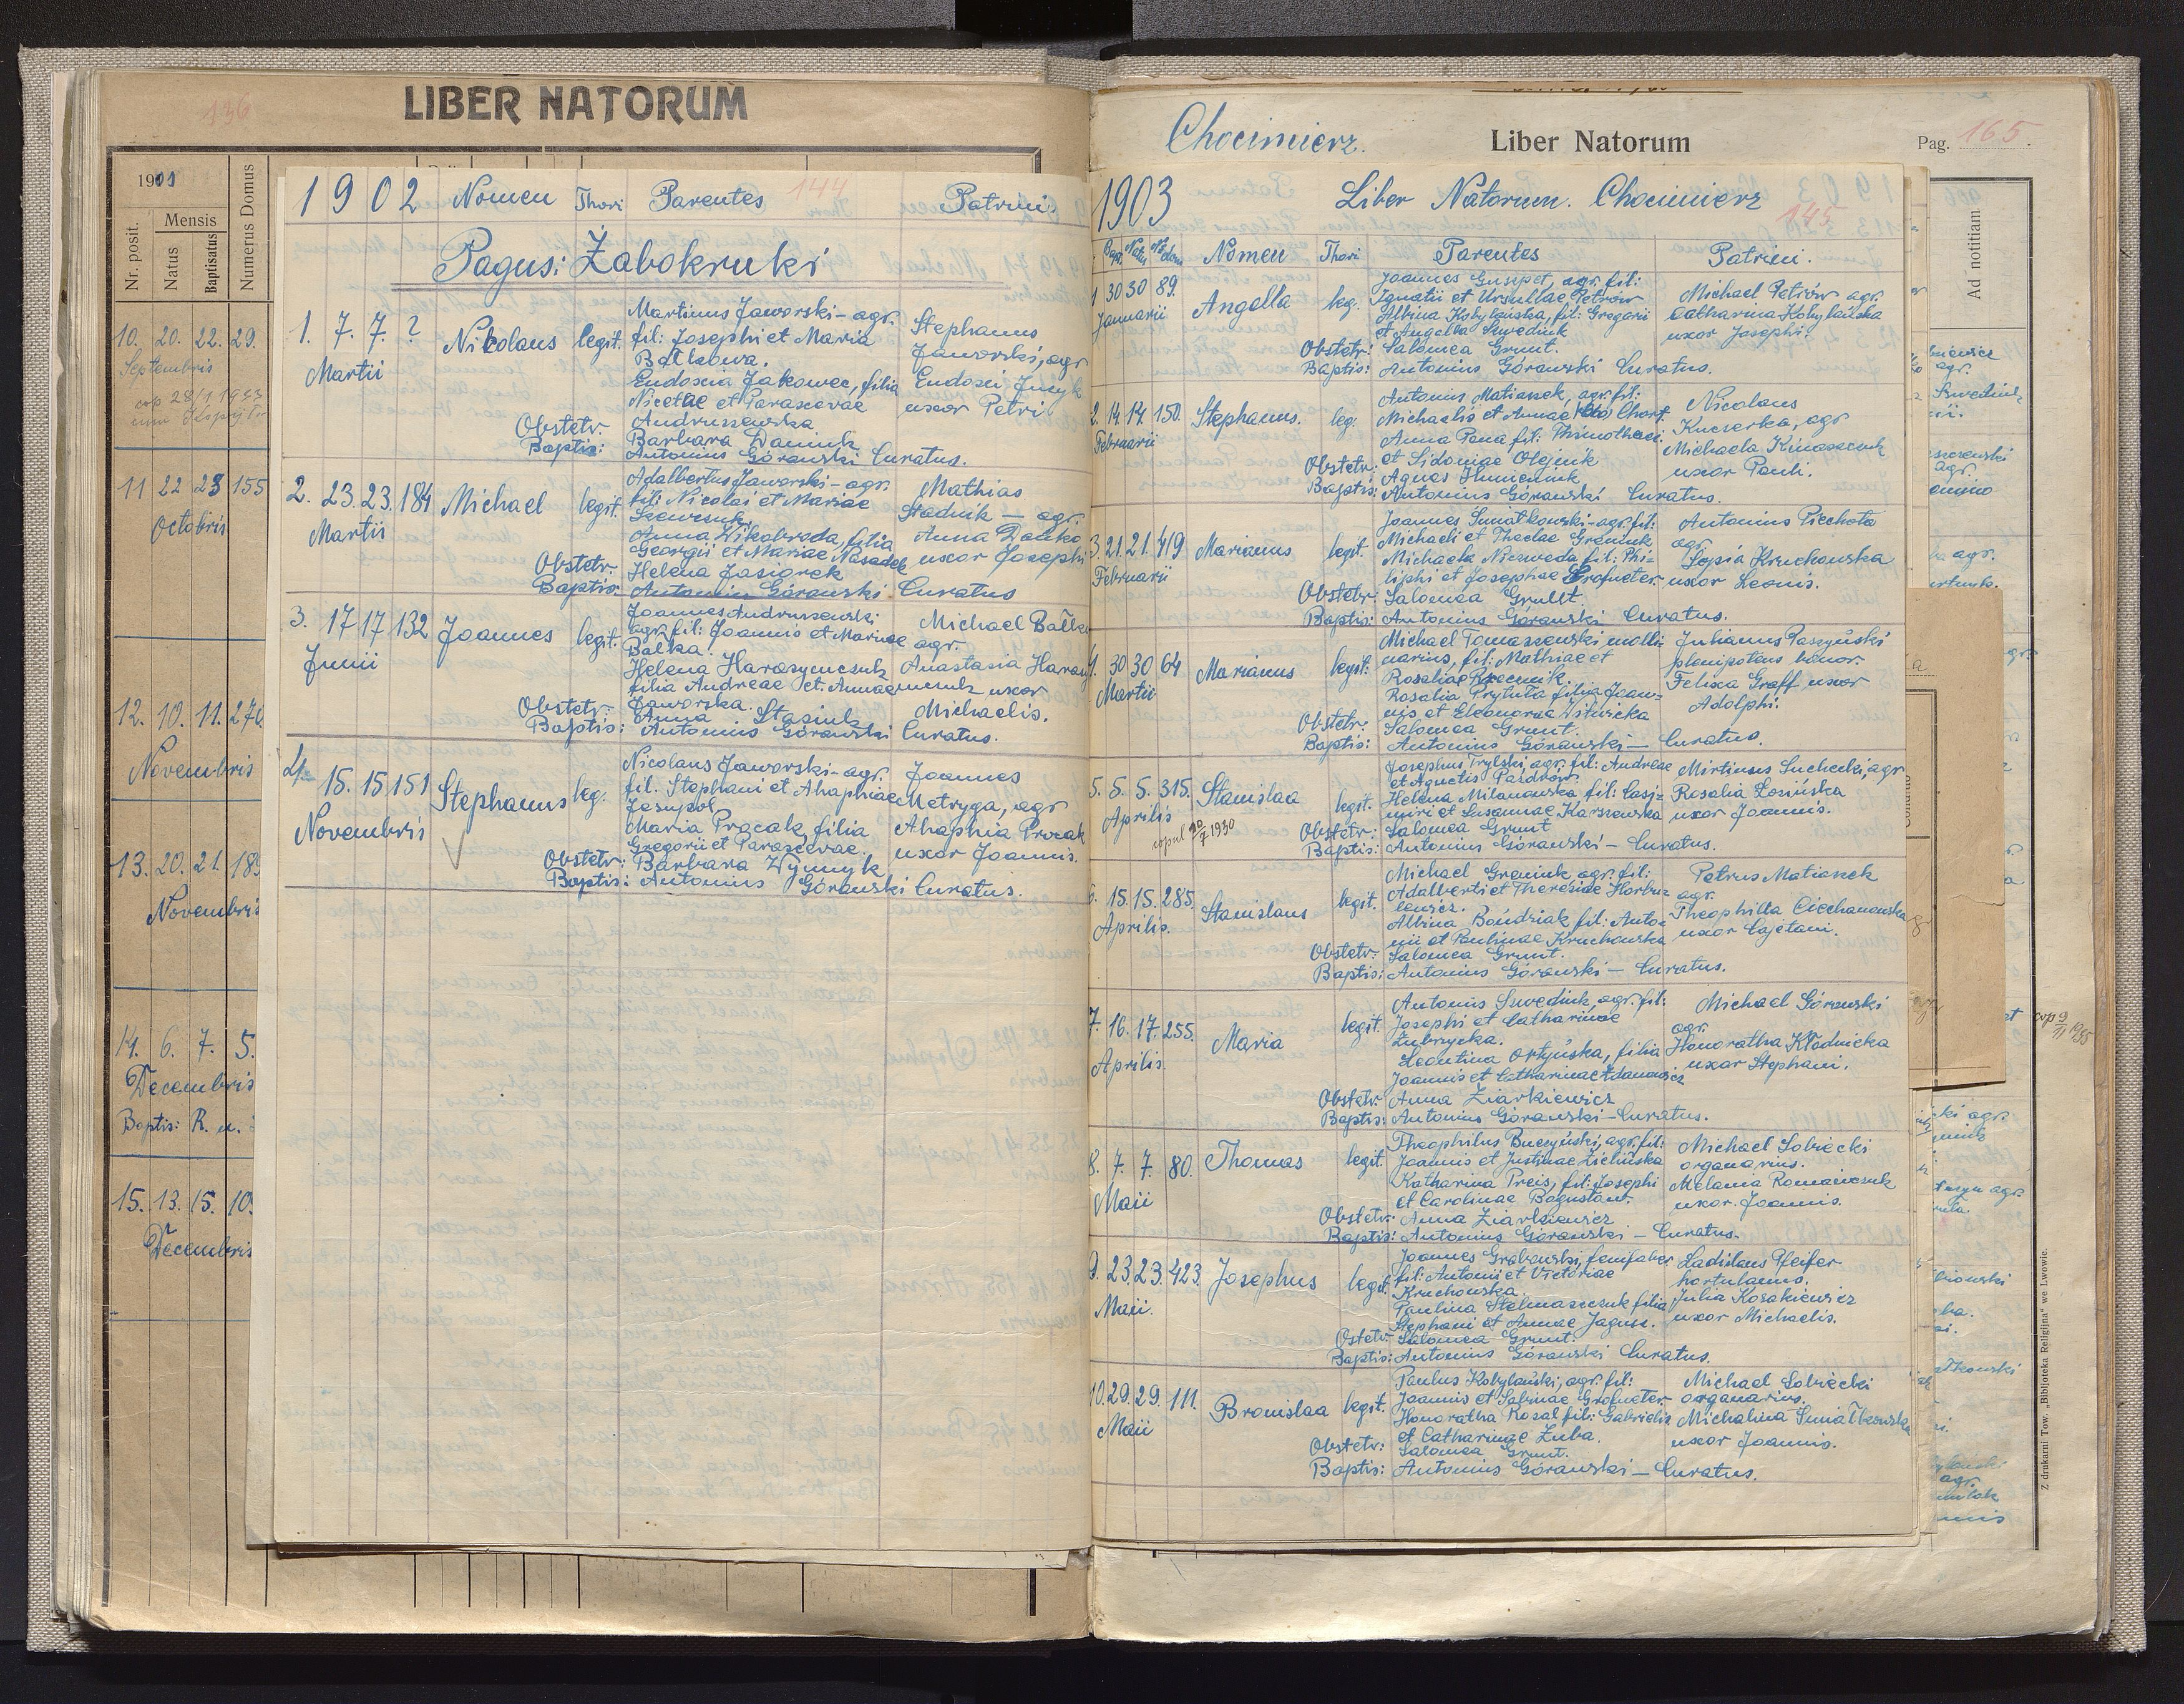 136
LIBER NATORUM
1901
Nr. posit.
Mensis
Natus
Baptisatus
Numerus Domus
10. 20. 22. 29.
Septembris
11 22 23 155
Octobris
12. 10. 11. 276
Novembris
13. 20. 21. 189
Novembris
14. 6. 7. 5.
Decembris
Baptis: R. u.
15. 13. 15. 10.
Decembris
1902 Nomen Thori Parentes 144 Patrini
Pagus: Żabokruki
1. 7. 7. ? Nikolaus legit. Martinus Jaworski - agr.
Martii
fil: Josephi et Maria
Bałkowa.
Eudoxia Jakowec, filia
Nicetae et Parascevae
Andruszewska
Stephanus
Jaworski, agr
Eudoxi
uxor Petri
Obstetr: Barbara Daniuk
Baptis: Antonius Góranski Curatus.
2. 23. 23. 184 Michael legit. Adalbertus Jaworski - agr.
Martii
fil: Nicolai et Mariae
Szewczuk
Anna Wikobroda, filia
Georgii et Mariae Nasadek
Mathias
Stadnik - agr.
Anna
uxor Josephi
Obstetr: Helena Jasiorek
Baptis: Antonius Góranski Curatus
3. 17 17 132 Joannes legit. Joannes Andruszewski
Junii
agr. fil: Joannis et Mariae
Bałka.
Helena Harasymczuk
filia Andreae et Annae
Jaworska.
Michael Bałka
agr.
Anastasia Harasy
mczuk uxor
Michaelis.
Obstetr: Anna Stasiuk
Baptis: Antonius Góranski Curatus.
4. 15. 15 151 Stephanus leg. Nicolaus Jaworski - agr.
Novembris
fil. Stephani et Ahaphiae
Jesypol
Maria Procak, filia
Gregorii et Parascevae.
Joannes
Metryga, agr
Ahaphia Procak
uxor Joannis.
Obstetr: Barbara Wynnyk
Baptis: Antonius Góranski Curatus.
Chocimierz.
Liber Natorum
Pag. 165
1903 Liber Natorum. Chocimierz
145
Bapt. Natus № dom. Nomen Thori Parentes Patrini.
1 30 30 89. Angella leg.
Januarii
Joannes Gusspet, agr. fil:
Ignatii et Ursullae Petrów
Albina Kobylańska, fil: Gregorii
et Angella Szwediuk
Michael Petrów agr.
Catharina Kobylańska
uxor Josephi.
Obstetr: Salomea Grunt.
Baptis: Antonius Góranski Curatus.
2. 14. 14. 150. Stephanus. leg.
Februarii
Antonius Matiaszek, agr. fil:
Michaelis et Annae
Anna Pana fil: Thimothaei
et Sidoniae Olejnik
Nicolaus
Kucserka, agr
Michaela
uxor Pauli.
Obstetr: Agnes
Baptis: Antonius Góranski Curatus.
3. 21. 21. 419 Marianus legit.
Februarii
Joannes Śmiałkowski - agr. fil:
Michaeli et Theclae Greniuk
Michaela Niezweda fil: Phi-
liphi et Josephae Grofneter.
Antonius Piechota
agr.
Sofia Kruchowska
uxor Leonis.
Obstetr: Salomea Grunt.
Baptis: Antonius Góranski Curatus.
4. 30 30 64 Marianus legit.
Martii
Michael Tomaszewski molli-
narius, fil: Mathiae et
Rosaliae
Rosalia Prytuła filia Joan-
nis et Eleonorae Witwicka
Julianus Raszyński
plenipotens honor.
Felixa Graff uxor
Adolphi.
Obstetr: Salomea Grunt.
Baptis: Antonius Góranski - Curatus.
5. 5. 5. 315. Stanislaa legit.
Aprilis
copul 20/X 1930
Josephus Trylski, agr. fil: Andreae
et Agnetis Pazdrów
Helena Milanowska fil: Casi-
miri et Susannae Karszewska
Martinus Suchecki, agr
Rosalia Łosińska
uxor Joannis.
Obstetr: Salomea Grunt
Baptis: Antonius Góranski - Curatus.
6. 15. 15. 285. Stanislaus legit.
Aprilis.
Michael Greniuk agr. fil:
Adalberti et Theresiae Horbu-
lewicz.
Albina Boudziak fil: Anto-
nii et Paulinae Kruchowska
Petrus Matiaszek
agr.
Theophilla Ciechanowska
uxor Cajetani.
Obstetr: Salomea Grunt.
Baptis: Antonius Góranski - Curatus.
7. 16. 17. 255. Maria legit.
Aprilis.
Antonius Szwediuk, agr. fil:
Josephi et Catharinae
Zubrzycka.
Leontina Ortyńska, filia
Joannis et Catharinae Adamowicz
Michael Góranski
agr.
Honoratha Kłodnicka
uxor Stephani.
Obstetr: Anna Ziarkiewicz
Baptis: Antonius Góranski - Curatus.
8. 7. 7. 80. Thomas legit.
Maii
Theophilus Buczyński, agr. fil:
Joannis et Justinae Zielińska
Katharina Preis, fil: Josephi
et Carolinae Bogustant.
Michael Sobiecki
organarius.
Melania Romańczuk
uxor. Joannis.
Obstetr: Anna Ziarkiewicz
Baptis: Antonius Góranski - Curatus.
9. 23. 23. 423. Josephus legit.
Maii.
Joannes Grabowski, femfaber
fil: Antonii et Victoriae
Kruchowska.
Paulina Stelmaszczuk filia
Stephani et Annae Jagusz.
Ladislaus Pfeifer
hortulanus.
Julia Kosakiewicz
uxor Michaelis.
Ostetr: Salomea Grunt.
Baptis: Antonius Góranski Curatus.
10. 29. 29. 111. Bronislaa legit.
Maii
Paulus Kobylański, agr. fil:
Joannis et Sabinae Grofneter.
Honoratha Kozal fil: Gabrielis
et Catharinae Zuba.
Michael Sobiecki
organarius.
Michalina Śmiałkowska
uxor Joannis.
Obstetr: Salomea Grunt.
Baptis: Antonius Góranski - Curatus.
Ad notitiam
cop 9/II 1935
Z drukarni Tow. „Bibljoteka Religijna” we Lwowie.